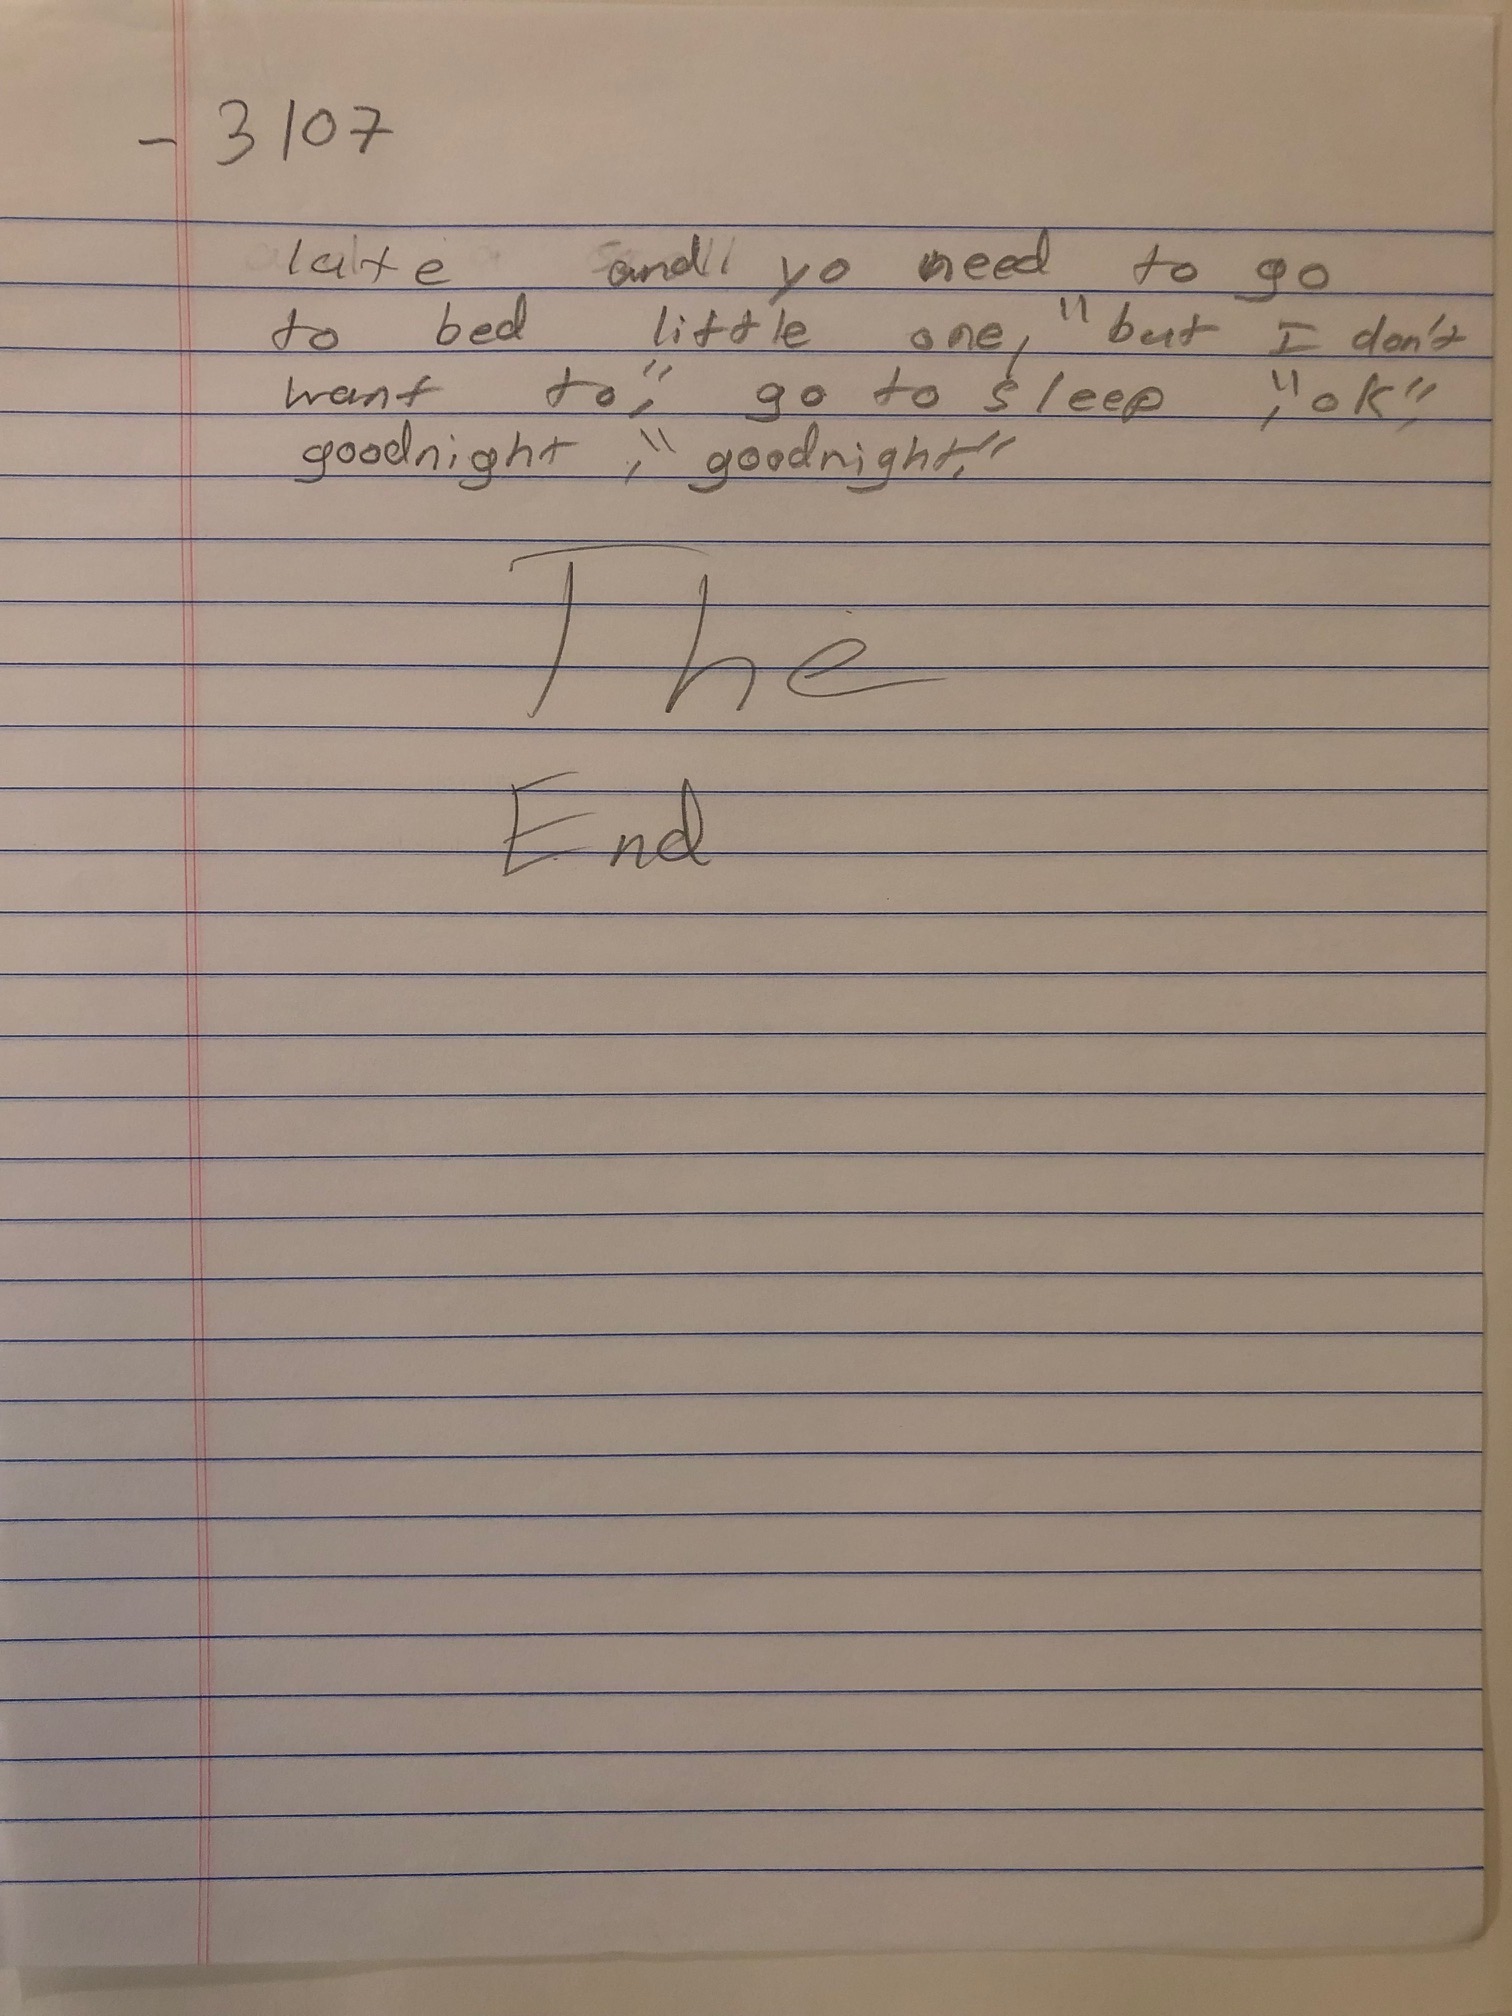 - 3107
late and yo need to go
to bed little one, "but I don't
want to," go to sleep ," ok",
goodnight ," goodnight."
The
End